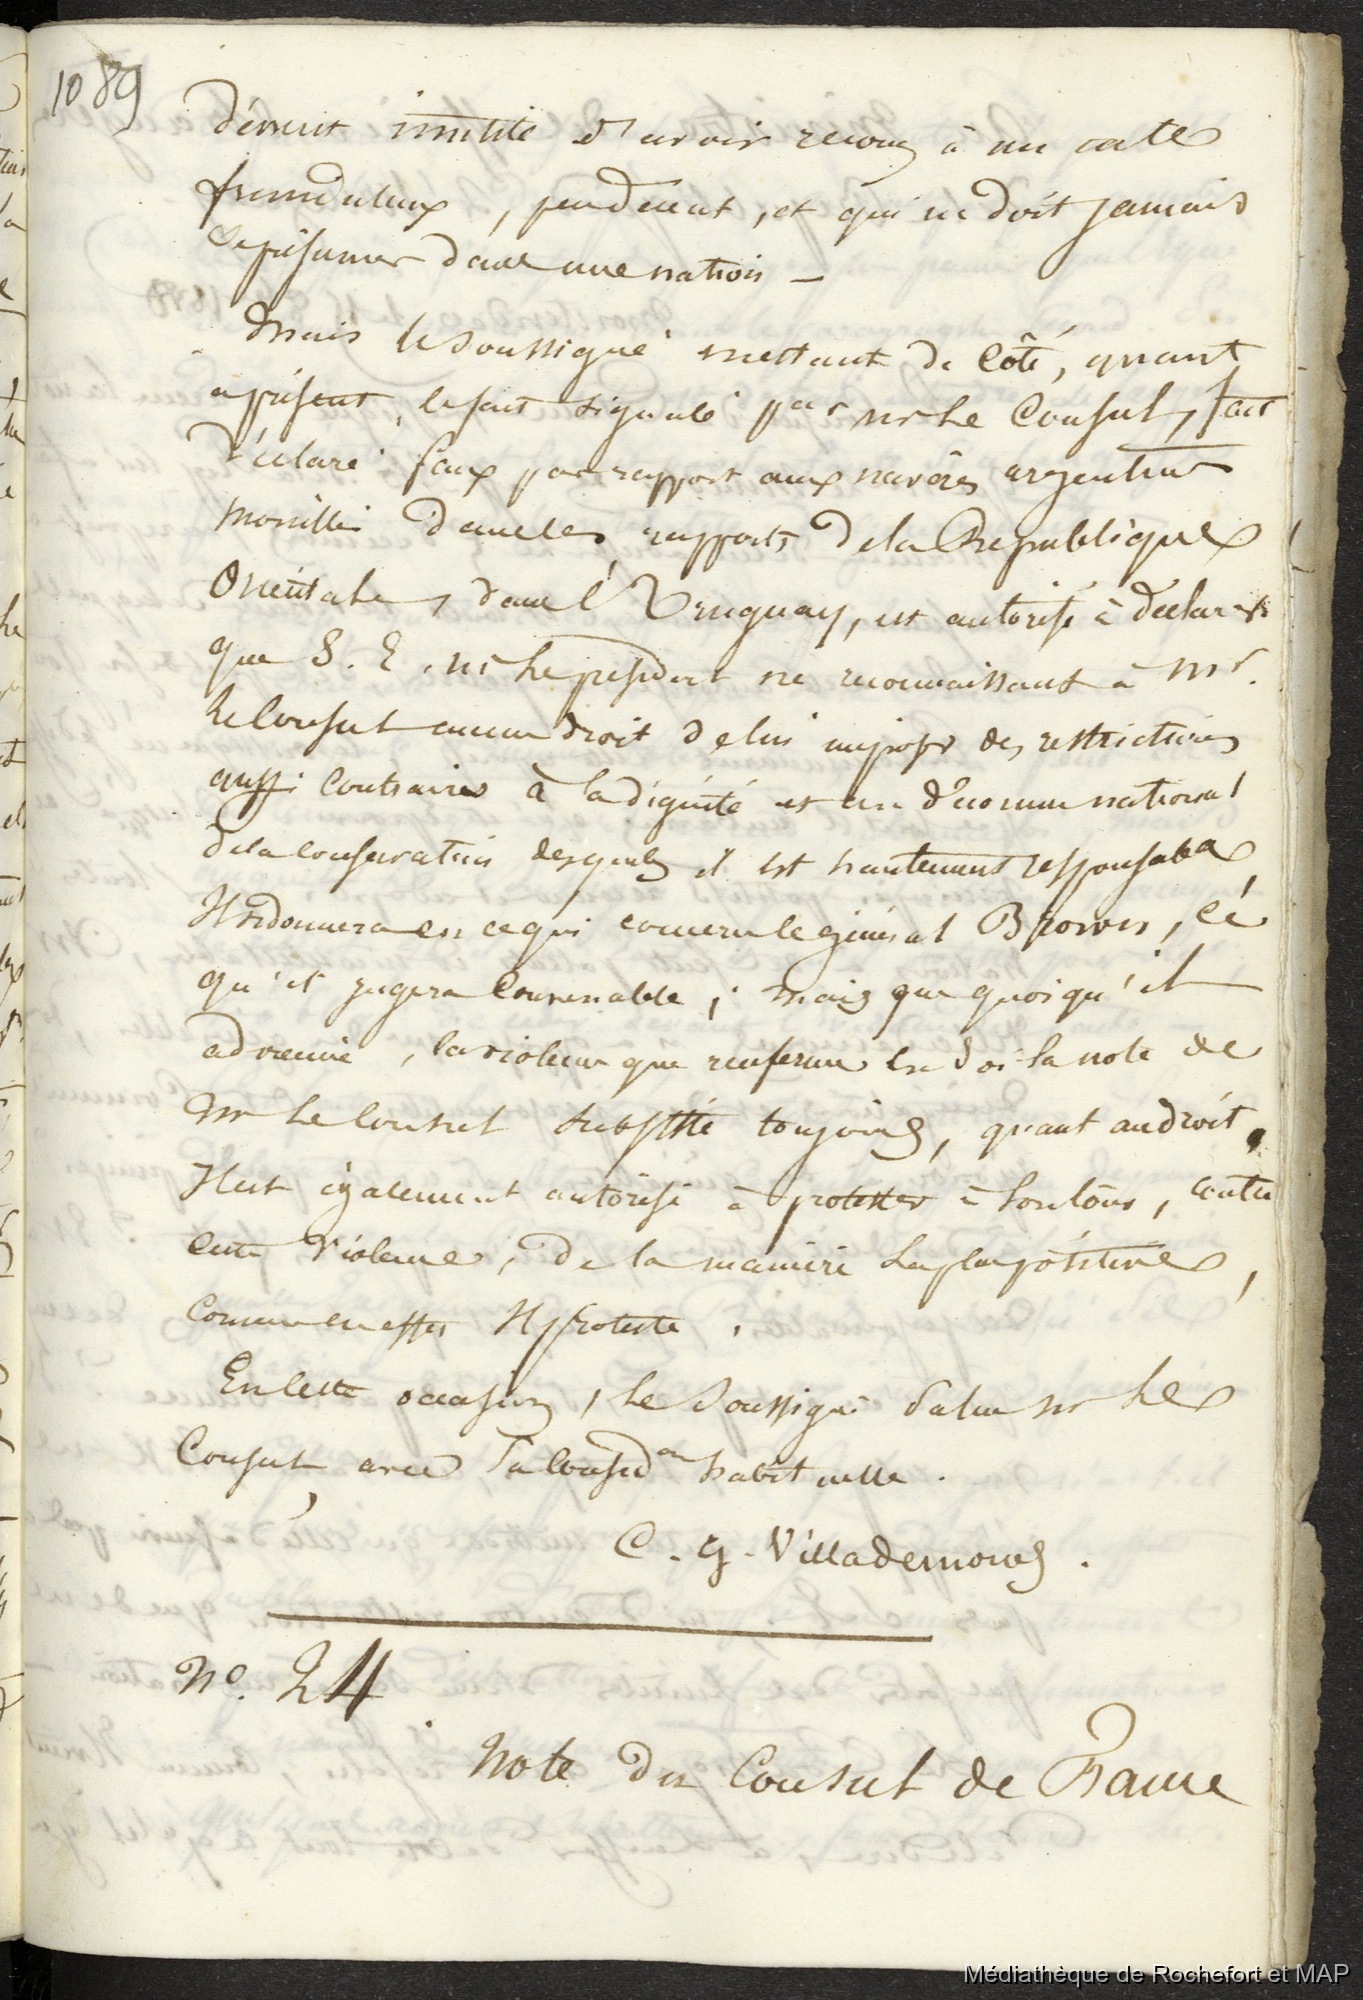 1089
devenir inutile d'avoir recours à un acte
frauduleux, , et qui ne doit jamais
se présumer dans une nation –
Mais le soussigné mettant de côté, quant
a présent, le fait signalé par mr Le Consul, fait
déclaré faux par rapport aux navires argentins
mouillés dans les rapports de la République
Orientale, dans l'Uruguay, est autorisé à déclarer
que S. E. mr Le président ne reconnaissant à Mr.
Le Consul aucun droit de lui imposer des restrictions
aussi contraires à la dignité et au décorum national
de la conservation desquels il est hautement responsable,
Il ordonnera en ce qui concerne le général Brown, ce
qu'il jugera convenable; mais que quoiqu'il
advienne, la violence que renferme en soi la note de
Mr Le Consul subsiste toujours, quant au droit.
Il est également autorisé à protester contre
cette violence, de la manière la plus positive,
comme en effet Il proteste.
En cette occasion, le Soussigné salue mr Le
Consul, avec sa considon habituelle.
C. G. Villademoros.
No. 24
Note du Consul de France
Médiathèque de Rochefort et MAP